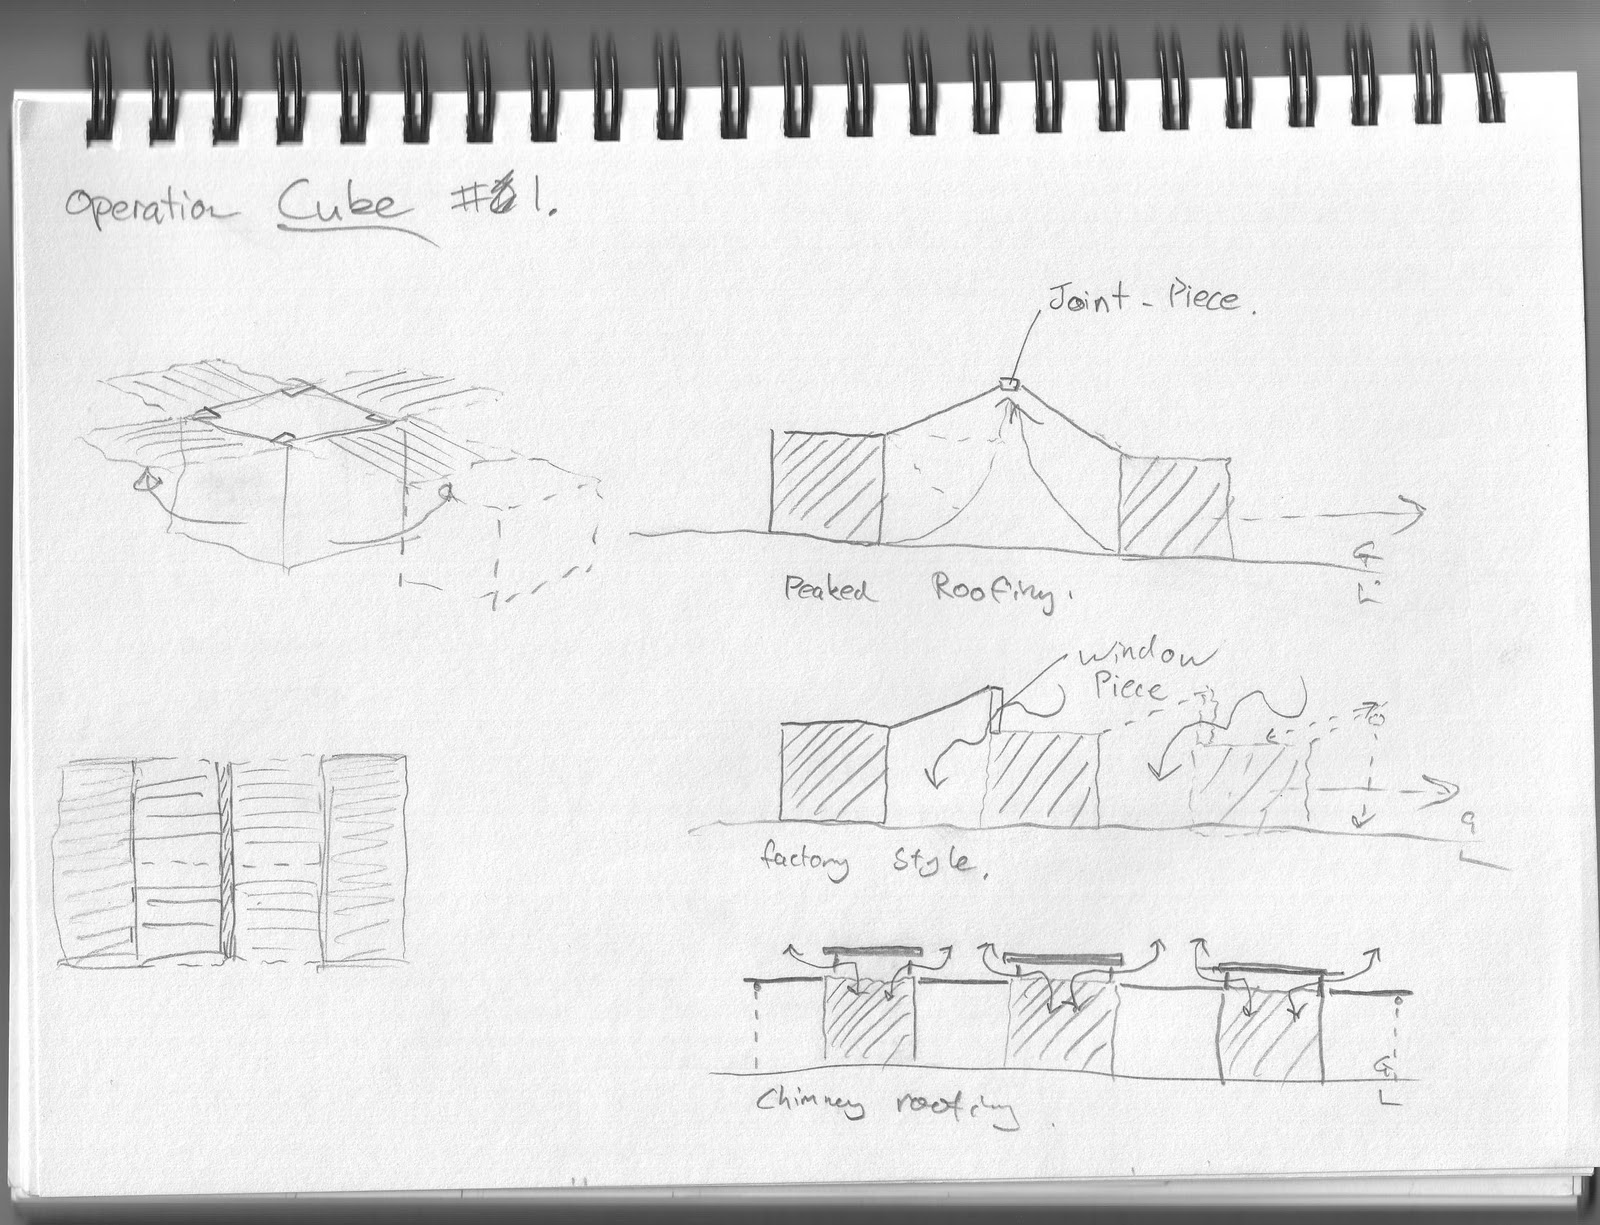 Operation Cube #1.
Joint-Piece.
G
L
Peaked Roofing.
window
Piece
G
L
factory Style.
G
L
Chimney roofing.